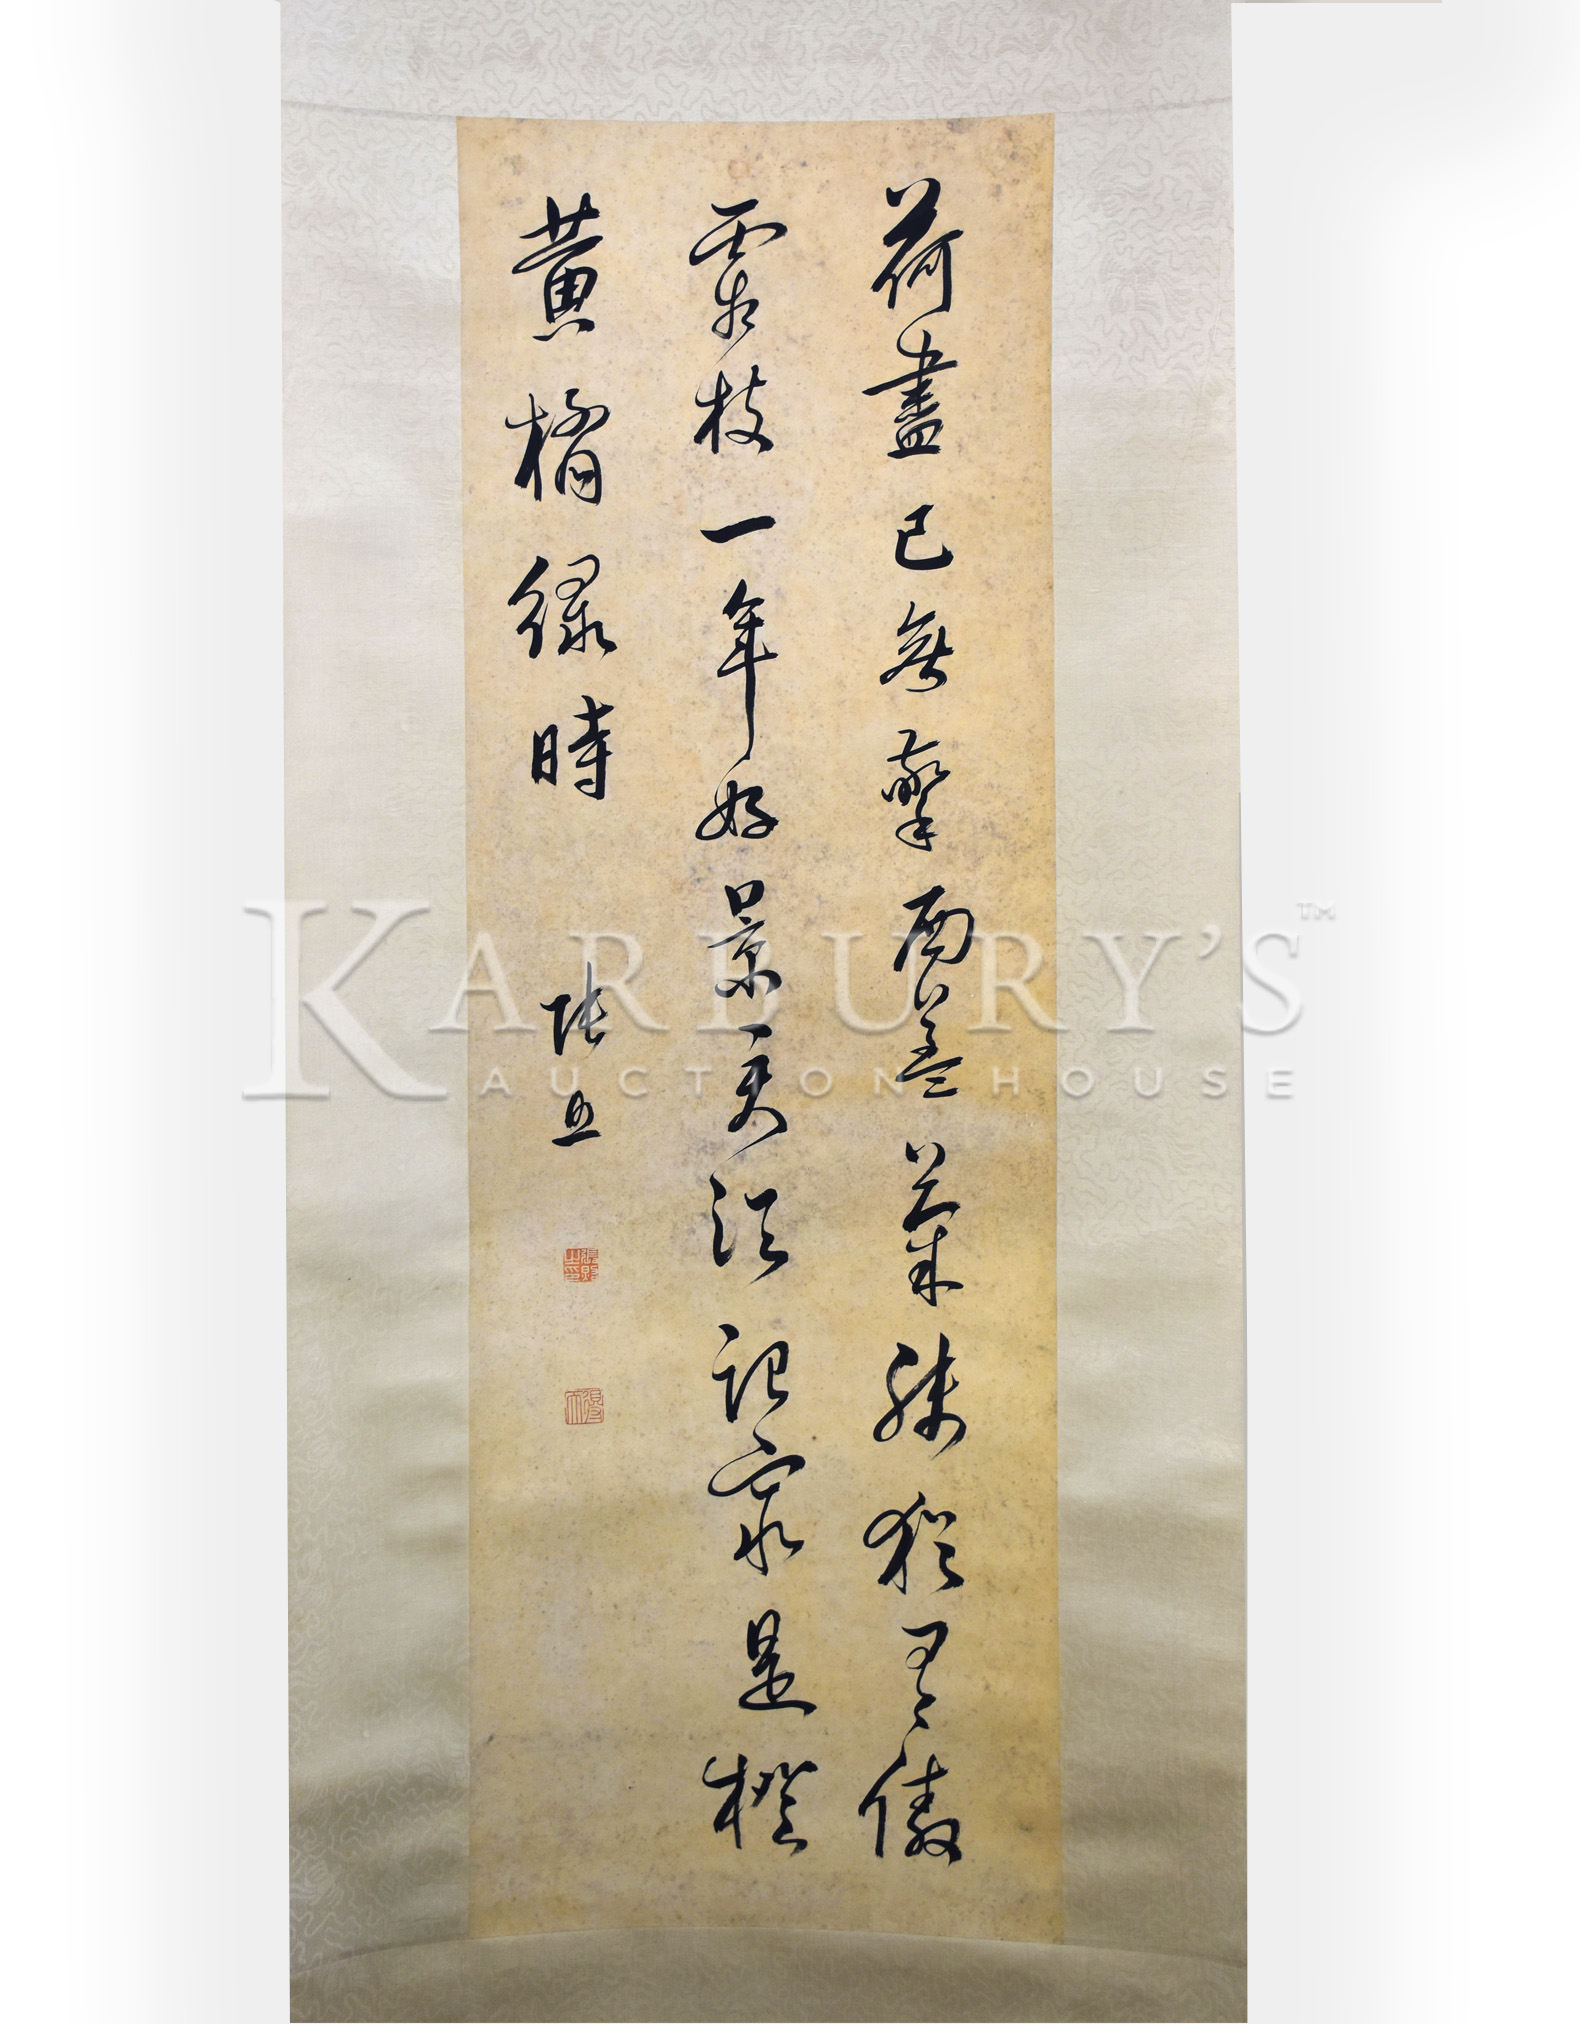 荷盡已無擎雨蓋菊殘猶有傲
霜枝一年好景君須記最是橙
黃橘綠時 張照
張照之印
KARBURY'S™
AUCTION HOUSE